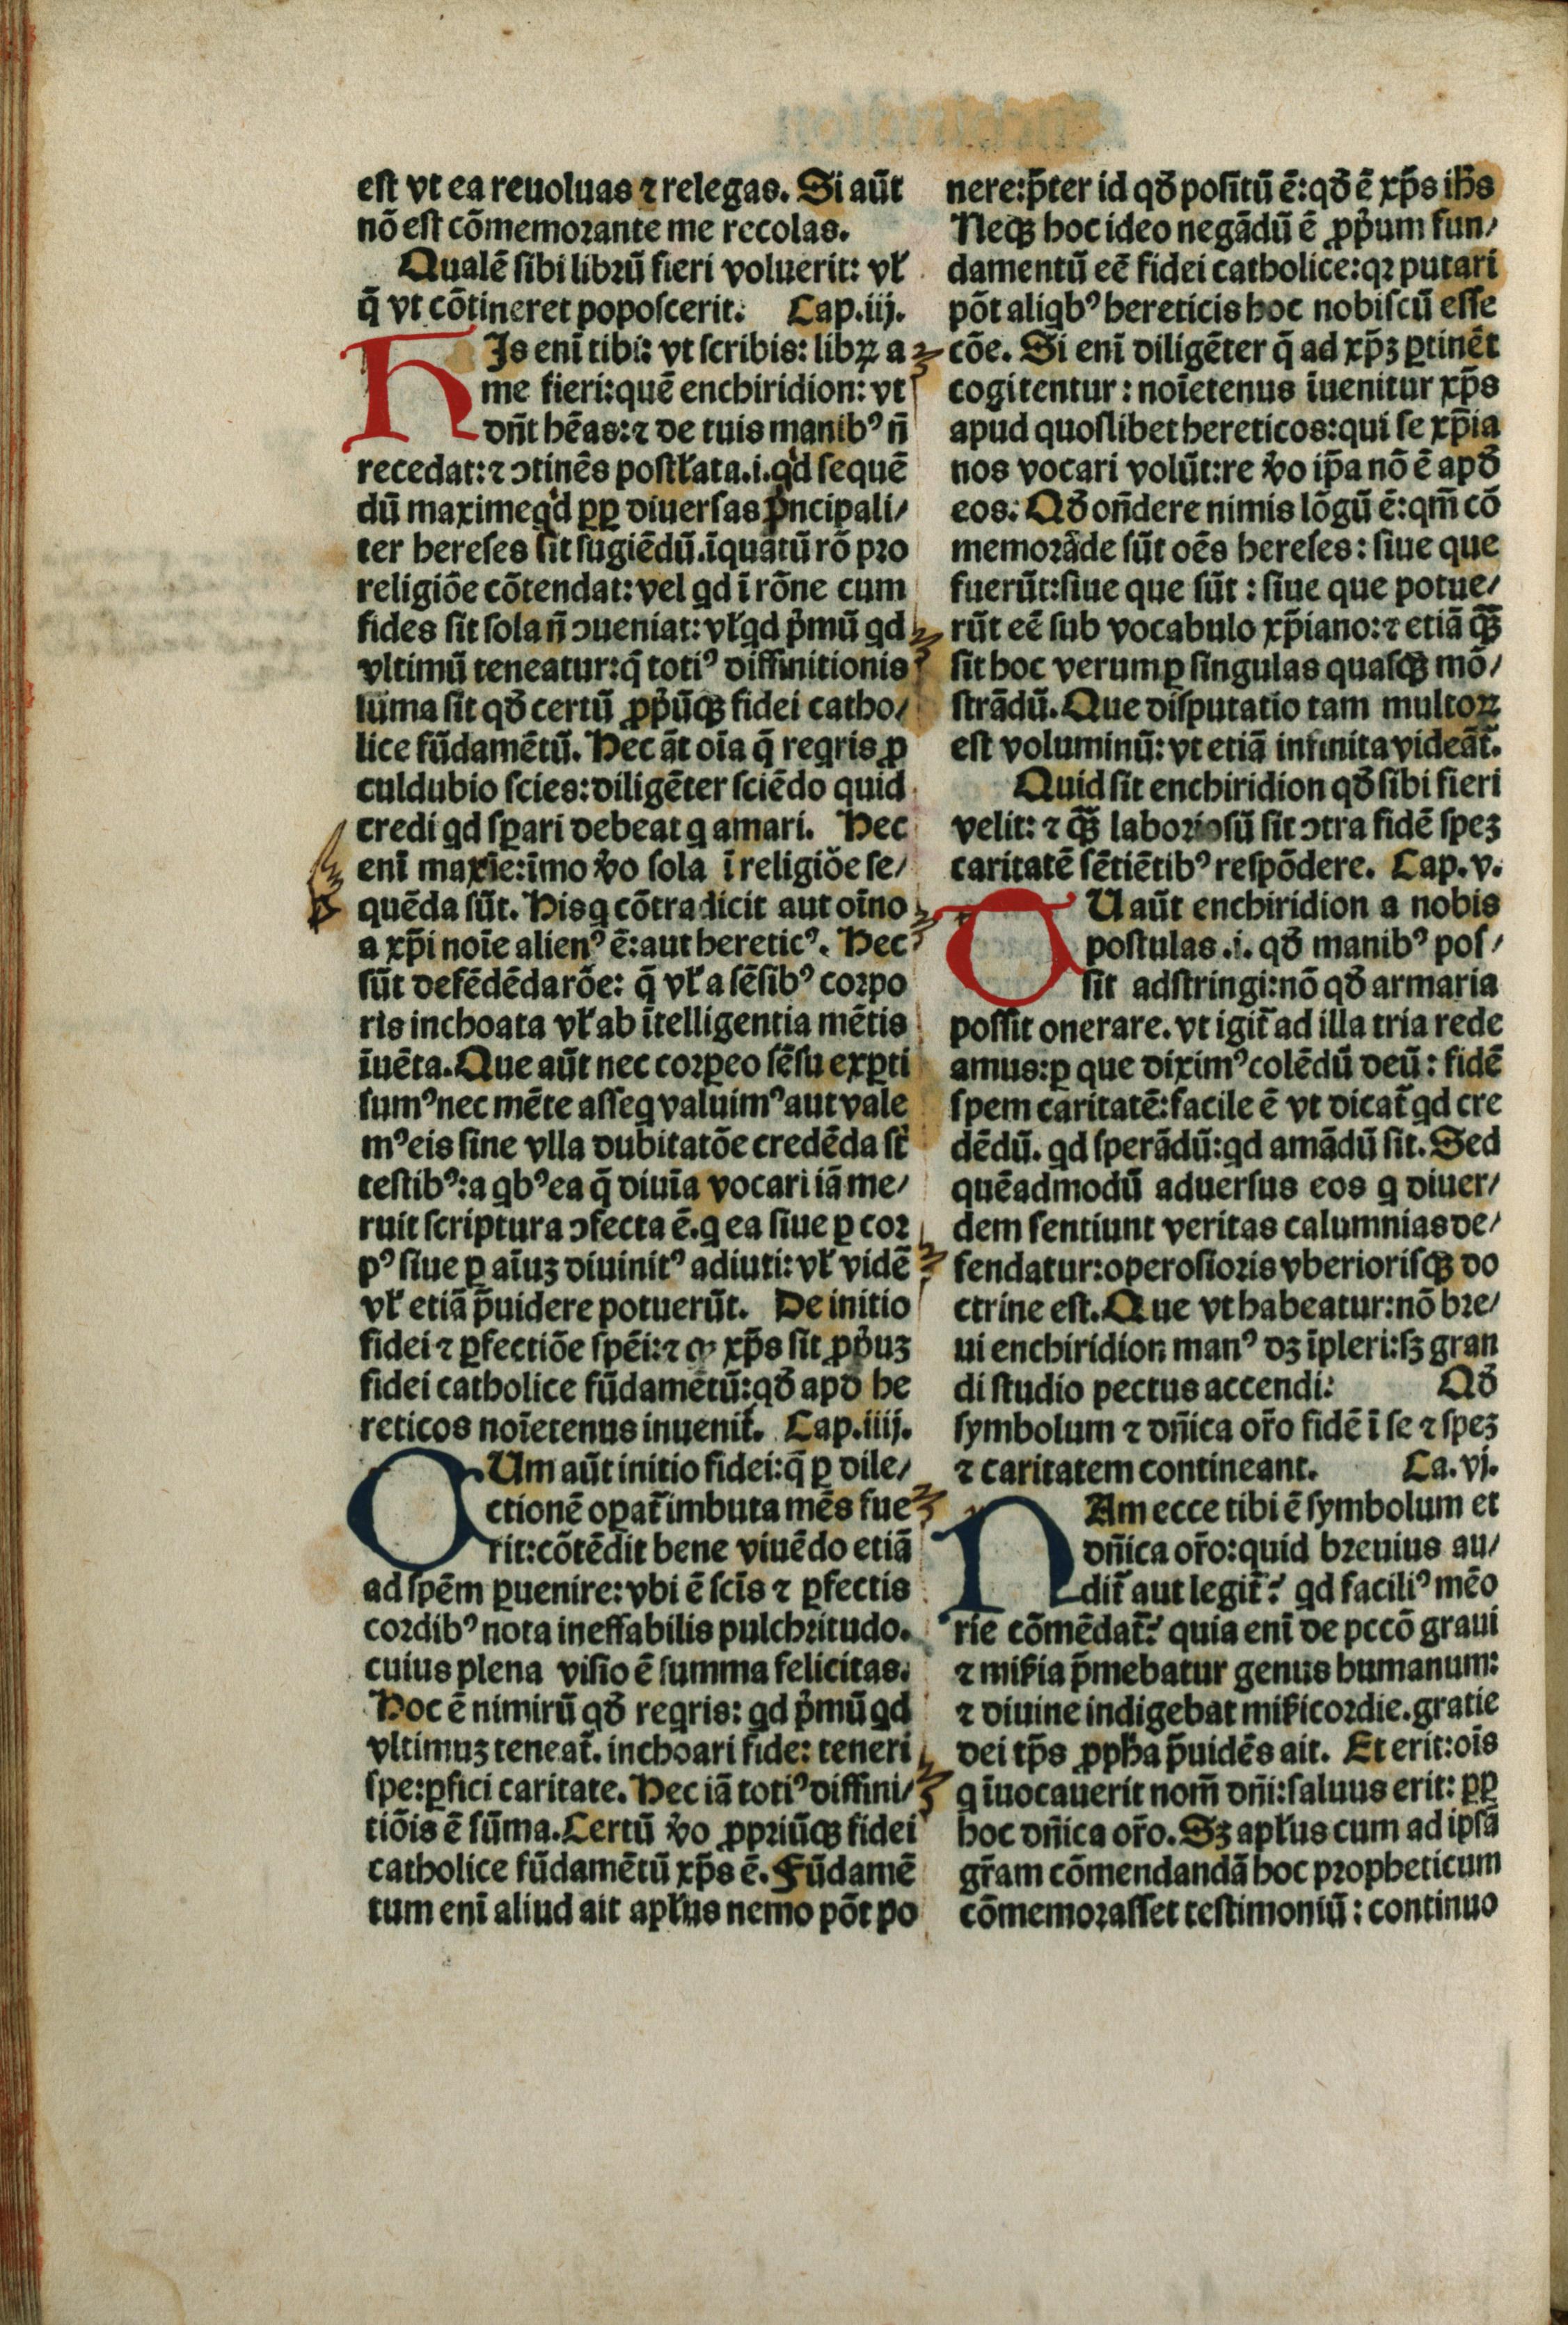 est vt ea reuoluas ⁊ relegas. Si aūt
nō est cōmemorante me recolas.
Qualē sibi librū fieri voluerit: vł
q̄ vt cōtineret poposcerit. Cap.iij.
HIs enī tibi: vt scribis: libꝝ a
me fieri:quē enchiridion: vt
dn̄t hēas:⁊ de tuis manibꝰ n̄
recedat:⁊ ↄtinēs postłata.i.qd sequē
dū maximeqd ꝑꝑ diuersas pncipali/
ter hereses sit fugiēdū.īquātū rō pro
religiōe cōtendat: vel qd ī rōne cum
fides sit sola n̄ ↄueniat: vłqd pmū qd
vltimū teneatur:q̄ totiꝰ diffinitionis
sūma sit qđ certū ꝓpūqꝫ fidei catho/
lice fūdamētū. Hec āt oīa q̄ reqris ꝓ
culdubio scies:diligēter sciēdo quid
credi qd sꝑari debeat q amari. Hec
enī maxīe:īmo v̊o sola ī religiōe se/
quēda sūt. His q cōtradicit aut oīno
a xp̄i noīe alienꝰ ē:aut hereticꝰ. Hec
sūt defēdēda rōe: q̄ vł a sēsibꝰ corpo
ris inchoata vł ab ītelligentia mētis
īuēta. Que aūt nec corꝑeo sēsu exꝑti
sumꝰ nec mēte asseq valuimꝰ aut vale
mꝰ eis sine vlla dubitatōe credēda st̄
testibꝰ:a qbꝰ ea q̄ diuīa vocari iā me/
ruit scriptura ↄfecta ē.q ea siue ꝑ cor
pꝰ siue ꝑ aīuꝫ diuinitꝰ adiuti: vł vidē
vł etiā p̄uidere potuerūt. De initio
fidei ⁊ ꝑfectiōe spēi:⁊ ꝙ xp̄s sit ꝓpuꝫ
fidei catholice fūdamētū:qđ apđ he
reticos noīetenus inuenit̄. Cap.iiij.
CUm aūt initio fidei:q̄ ꝑ dile/
ctionē oꝑat̄ imbuta mēs fue
rit:cōtēdit bene viuēdo etiā
ad spēm ꝑuenire: vbi ē scīs ⁊ ꝑfectis
cordibꝰ nota ineffabilis pulchritudo.
cuius plena visio ē summa felicitas.
Hoc ē nimirū qđ reqris: qd pmū qd
vltimuꝫ teneat̄. inchoari fide: teneri
spe:ꝑfici caritate. Hec iā totiꝰ diffini/
tiōis ē sūma. Certū v̊o ꝓpriūqꝫ fidei
catholice fūdamētū xp̄s ē. Fūdamē
tum enī aliud ait apłus nemo pōt po
nere:p̄ter id qđ positū ē:qđ ē xp̄s ih̄s
Neqꝫ hoc ideo negādū ē ꝓpum fun/
damentū eē fidei catholice:qꝛ putari
pōt aliqbꝰ hereticis hoc nobiscū esse
cōe. Si enī diligēter q̄ ad xp̄ꝫ ꝑtinēt
cogitentur: noīetenus īuenitur xp̄s
apud quoslibet hereticos:qui se xp̄ia
nos vocari volūt:re v̊o ip̄a nō ē apđ
eos. Qđ on̄dere nimis lōgū ē:qm̄ cō
memorāde sūt oēs hereses: siue que
fuerūt:siue que sūt: siue que potue/
rūt eē sub vocabulo xp̄iano:⁊ etiā qꝫ̄
sit hoc verum ꝑ singulas quasqꝫ mō/
strādū. Que disputatio tam multoꝝ
est voluminū: vt etiā infinita videāt̄.
Quid sit enchiridion qđ sibi fieri
velit: ⁊ qꝫ̄ laboriosū sit ↄtra fidē speꝫ
caritatē sētiētibꝰ respōdere. Cap.v.
TU aūt enchiridion a nobis
postulas .i. qđ manibꝰ pos/
sit adstringi:nō qđ armaria
possit onerare. vt igit̄ ad illa tria rede
amus:ꝑ que diximꝰ colēdū deū: fidē
spem caritatē:facile ē vt dicat̄ qd cre
dēdū. qd sperādū:qd amādū sit. Sed
quēadmodū aduersus eos q diuer/
dem sentiunt veritas calumnias de/
fendatur:operosioris vberiorisqꝫ do
ctrine est. Que vt habeatur:nō bre/
ui enchiridion manꝰ dꝫ īpleri:sꝫ gran
di studio pectus accendi: Qđ
symbolum ⁊ dn̄ica or̄o fidē ī se ⁊ speꝫ
⁊ caritatem contineant. Ca.vj.
NAm ecce tibi ē symbolum et
dn̄ica or̄o:quid breuius au/
dit̄ aut legit̄? qd faciliꝰ mēo
rie cōmēdat̄? quia enī de pccō graui
⁊ mis̄ia p̄mebatur genus humanum:
⁊ diuine indigebat mis̄icordie.gratie
dei tp̄s ꝓpħa p̄uidēs ait. Et erit:oīs
q īuocauerit nom̄ dn̄i:saluus erit: ꝑꝑ
hoc dn̄ica or̄o. Sꝫ apłus cum ad ipsā
gr̄am cōmendandā hoc propheticum
cōmemorasset testimoniū: continuo